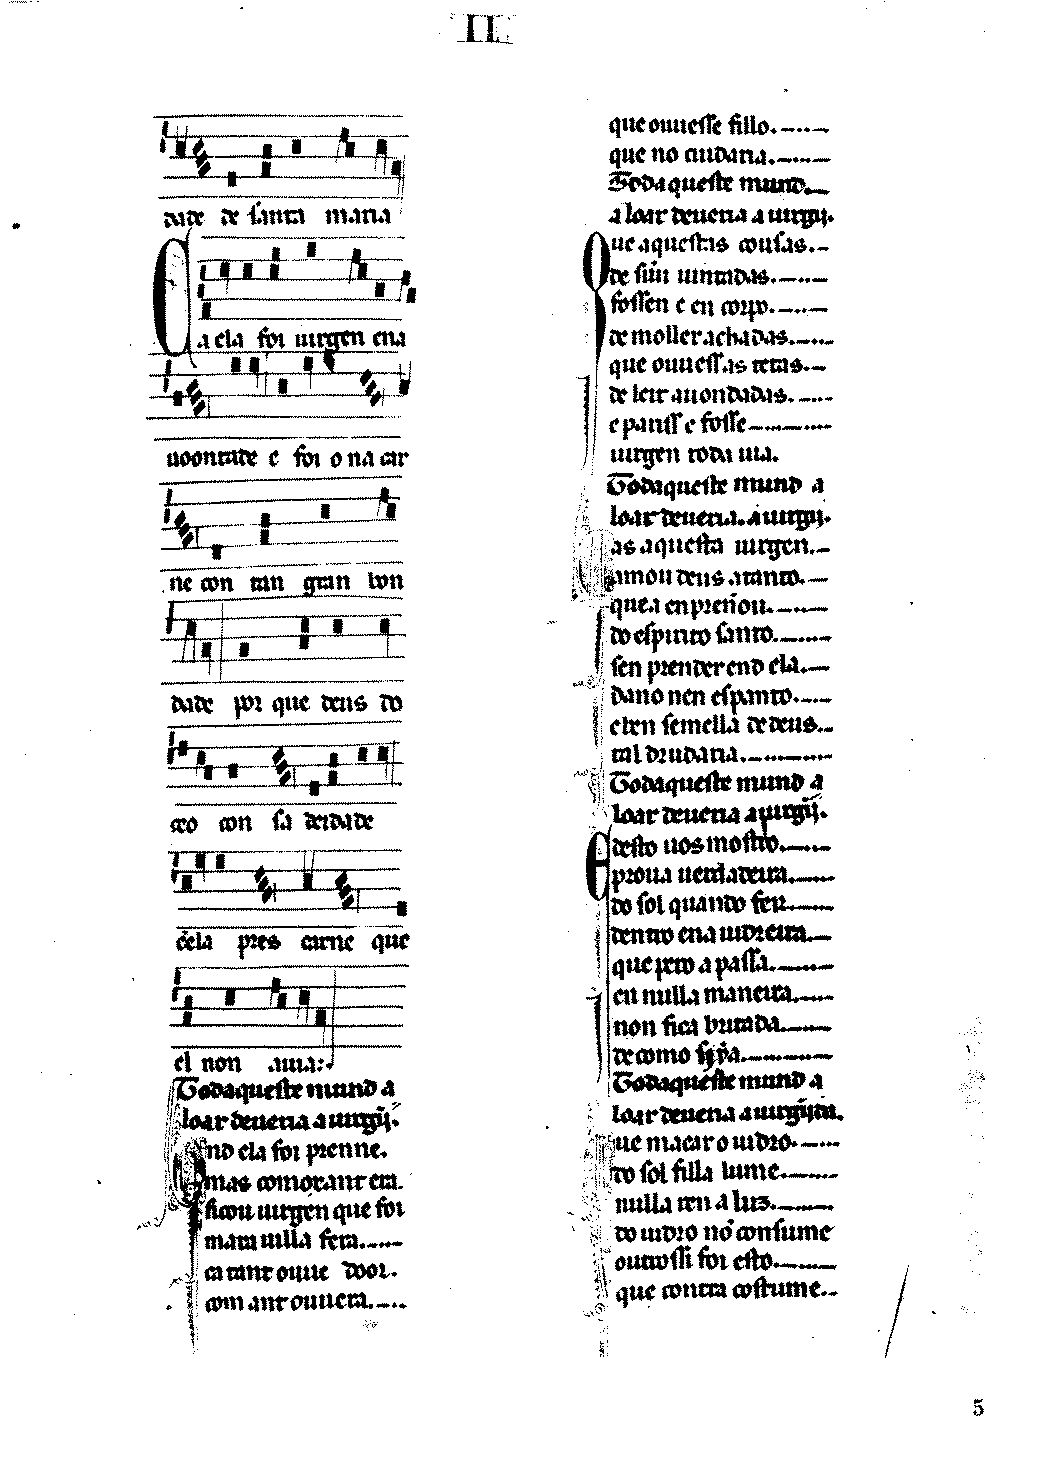 II
dade de santa maria
Ca ela foi uirgen ena
uoontade e foi o na car
ne con tan gran bon
dade por que deus do
ceo con sa deidade
dela pres carne que
el non auia:
Todaqueste mund a
loar deueria a uirgij̄.
And ela foi prenne.
mas comorant era.
ficou uirgen que foi
marauilla fera.
ca tant ouue door.
com ant ouuera.
que ouuesse fillo.
que no cudaria.
Todaqueste mund.
a loar deueria a uirgij.
Que aquestas cousas.
de sũu iuntadas.
fossen e en corpo.
de moller achadas.
que ouuessas tetas.
de leit auondadas.
e pariss e fosse
uirgen toda uia.
Todaqueste mund a
loar deueria. a uirgij.
Mas aquesta uirgen.
amou deus atanto.
que a enpreñou.
do espirito santo.
sen prender end ela.
dano nen espanto.
e ben semella de deus.
tal drudaria.
Todaqueste mund a
loar deueria a uirgij̄.
E desto uos mostro.
proua uerdadeira.
do sol quando fer.
dentro ena uidreira.
que pero a passa.
en nulla maneira.
non fica britada.
de como siỹa.
Todaqueste mund a
loar deueria a uirgijm.
Que macar o uidro.
do sol filla lume.
nulla ren a luz.
do uidro nõ consume
outrossi foi esto.
que contra costume.
5